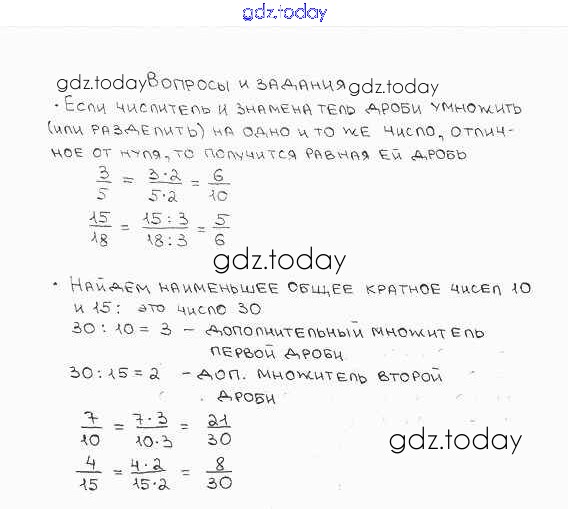 gdz.today
gdz.today Вопросы и задания gdz.today
· Если числитель и знаменатель дроби умножить
(или разделить) на одно и то же число, отлич-
ное от нуля, то получится равная ей дробь
3/5 = 3·2/5·2 = 6/10
15/18 = 15:3/18:3 = 5/6
gdz.today
· Найдём наименьшее общее кратное чисел 10
и 15: это число 30
30 : 10 = 3 – дополнительный множитель
первой дроби
30 : 15 = 2 – доп. множитель второй
дроби
7/10 = 7·3/10·3 = 21/30
gdz.today
4/15 = 4·2/15·2 = 8/30